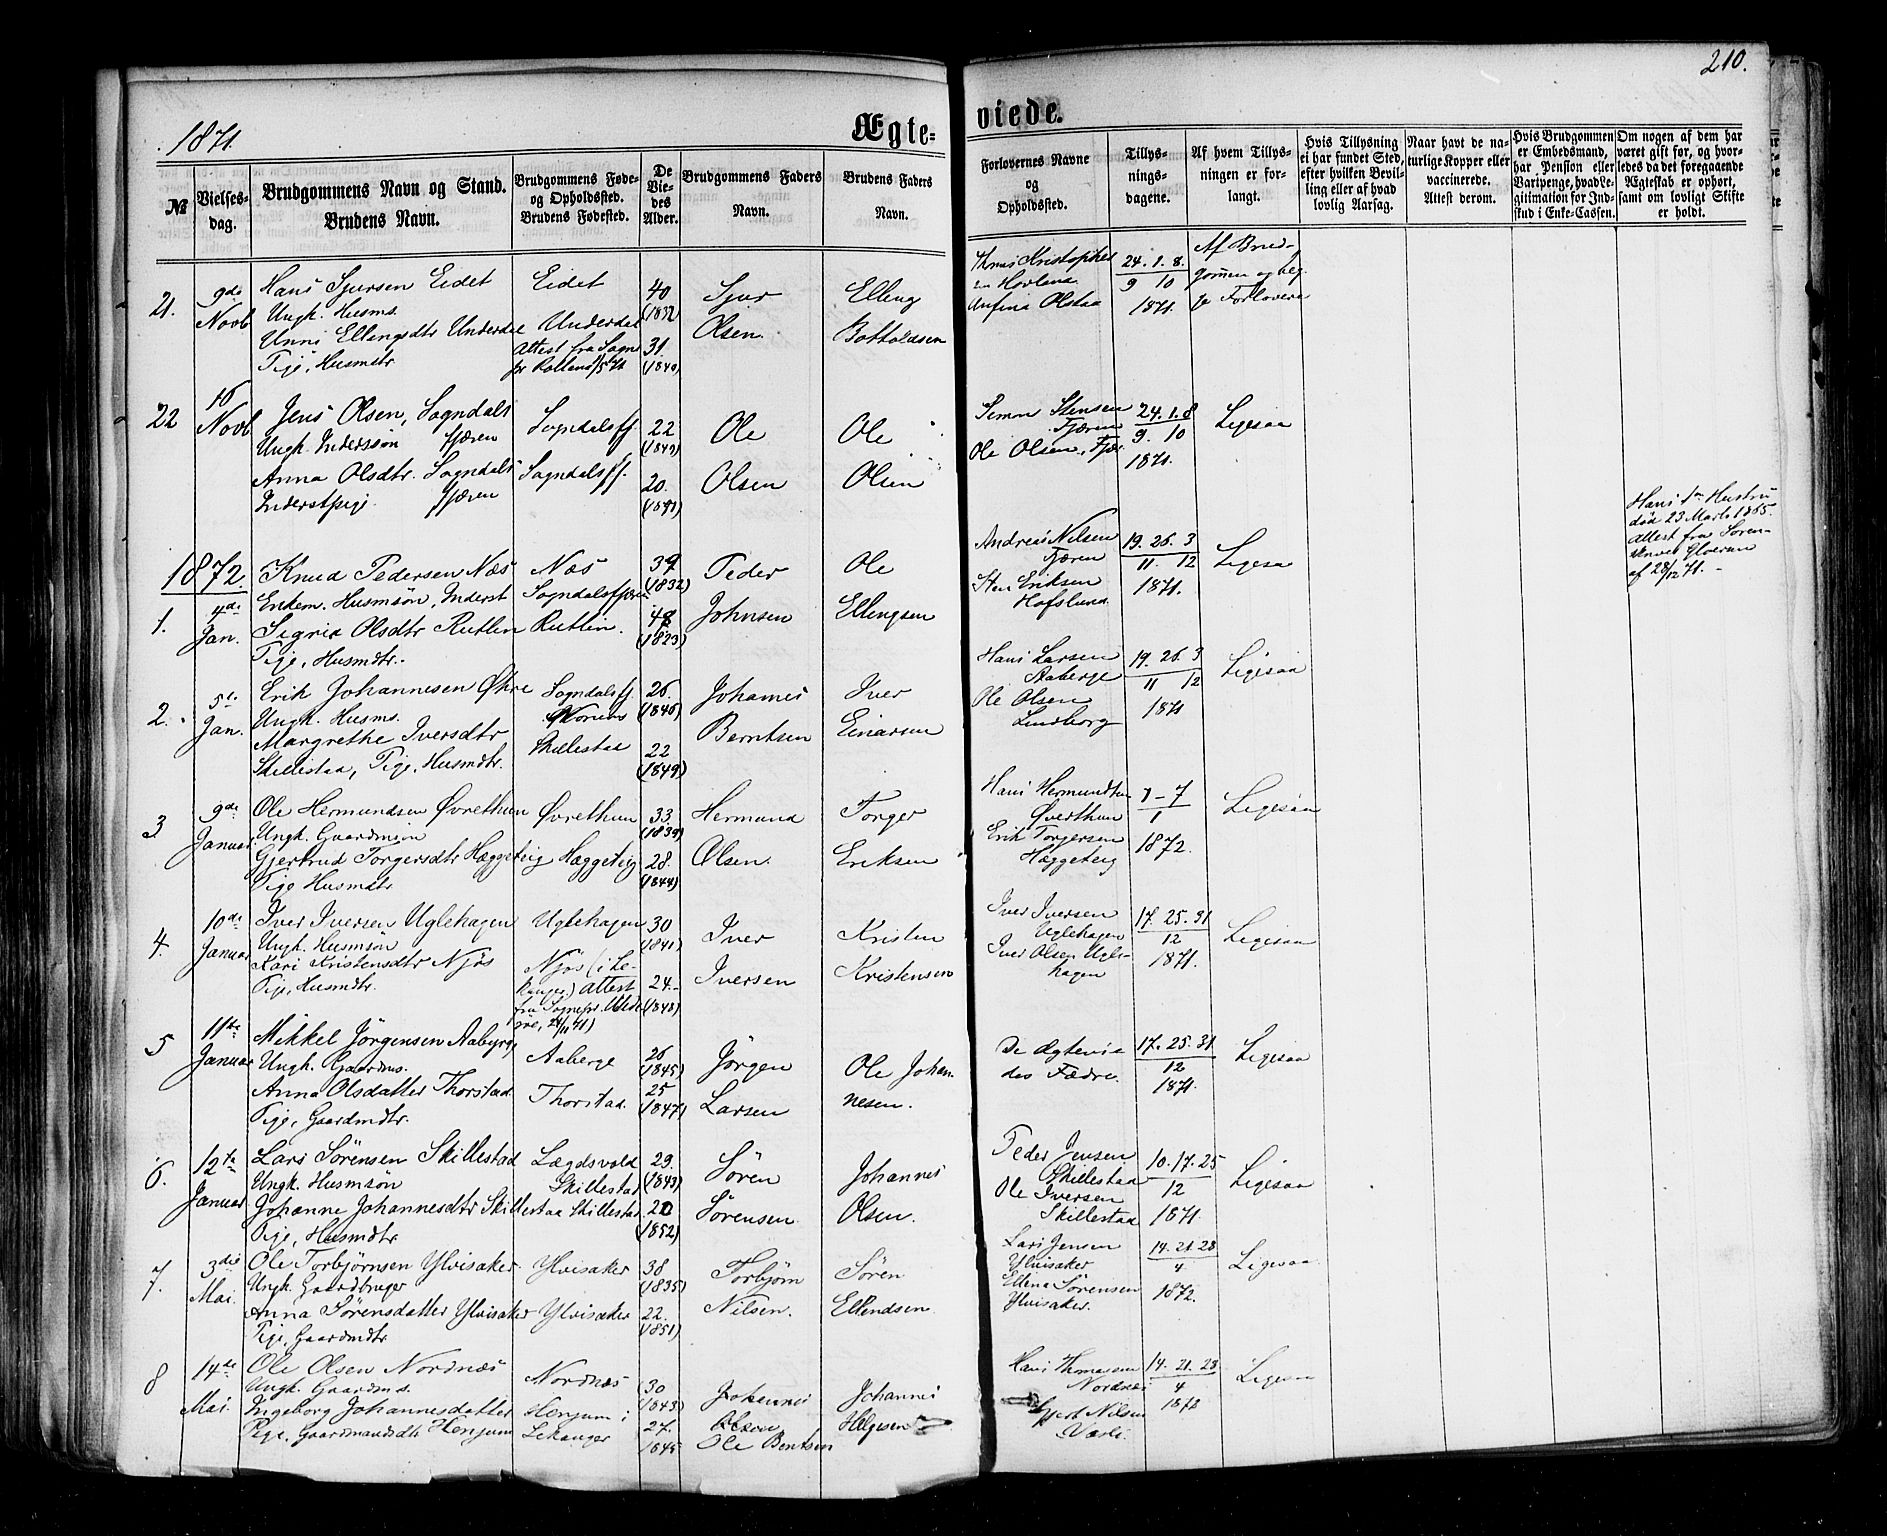 210.
1871.
Ægte-
viede.
№
Vielses-
dag.
Brudgommens Navn og Stand.
Brudens Navn.
Brudgommens Føde-
og Opholdssted.
Brudens Fødested.
De
Vie-
des
Alder.
Brudgommens Faders
Navn.
Brudens Faders
Navn.
Forlovernes Navne
og
Opholdssted.
Tillys-
nings-
dagene.
Af hvem Tillys-
ningen er for-
langt.
Hvis Tillysning
ei har fundet Sted,
efter hvilken Bevil-
ling eller af hvad
lovlig Aarsag.
Naar havt de na-
turlige Kopper eller
vaccinerede.
Attest derom.
Hvis Brudgommen
er Embedsmand,
har Pension eller
Varipenge, hvad Le-
gitimation for Ind-
skud i Enke-Cassen.
Om nogen af dem har
været gift før, og hvor-
ledes da det foregaaende
Ægteskab er ophørt,
samt om lovligt Skifte
er holdt.
21.
9de
Novb
Hans Sjursen Eidet
Ungk. Husms.
Unni Ellingsdtr Underdal
Pige, Husmdtr
Eidet
Underdal
Attest fra Sogne
40
(1832)
31.
(1840)
Sjur
Olsen.
Elling
Bottholdsen
Hovland
24.1.8.
9 10
1871.
Af Brud-
gommen og beg-
ge Forlovere
22
16
Novb
Jens Olsen, Sogndals
Ungk. Inderssön fjæren
Anna Olsdtr. Sogndals
Inderstpige. fjæren
Sogndalsfj.
Sogndalsfj.
22
(1849)
20.
(1851)
Ole
Olsen
Ole
Olsen
Simon Stensen
Fjæren
Ole Olsen, Fjær.
24.1.8
9. 10
1871.
Ligesaa
1872
1.
4de
Jan.
Knud Pedersen Næs
Enkem. Husmsön, Inderst
Sigrid Olsdtr Rutlin
Pige, Husmdtr.
Næs
Sogndalsfjæren
Rutlin.
39
(1832)
48
(1823)
Peder
Johnsen
Ole
Ellingsen
Andreas Nilsen
Fjæren
Sten Eriksen
Hofslund.
19.26.3
11. 12
1871.
Ligesa
Hans 1m Hustru
död 23 Marts 1865.
Attest fra Soren-
skriver
af 28/12 71.
2.
5te
Jan.
Erik Johannesen Øhre
Ungk. Husms.
Margrethe Iversdtr
Skillestad, Pige, Husmdtr.
Sogndalsfj.
Norum
Skillestad
26.
(1846)
22
(1849)
Johannes
Berntsen
Iver
Einarsen
Hans Larsen
Aaberge
Ole Olsen
Lindborg
19.26.3
11 12
1871
Ligesaa
3
9de
Januar.
Ole Hermundsen Øvrethun
Ungk. Gaardmsön
Gjertrud Torgersdtr Hæggeteig
Pige Husmdtr
Øvrethun
Hæggeteig
33.
(1839)
28.
(1844)
Hermund
Olsen.
Torger
Eriksen
Hans Hermundsen
Øverthun
Erik Torgersen
Hæggeteig
1-7
1
1872.
Ligesaa
4.
10de
Januar
Iver Iversen Uglehagen
Ungk. Husmsön
Kari Kristensdtr Njös
Pige, Husmdtr.
Uglehagen
Njös (i Le-
kanger) Attest
fra Sognepr.
30
(1841)
24.-
(1848)
Iver
Iversen
Kristen
Kristensen
Iver Iversen
Uglehagen
Iver Olsen Ugle-
hagen
17.25.31
12
1871.
Ligesaa
5
11te
Januar
Mikkel Jörgensen Aaberge
Ungk. Gaardms.
Anna Olsdatter Thorstad
Pige, Gaardmdtr.
Aaberge
Thorstad.
26
(1845)
25
(1847)
Jörgen
Larsen
Ole Johan-
nesen.
De Ægtevie-
des Fædre.
17.25.31
12
1871.
Ligesaa
6.
12te
Januar
Lars Sörensen Skillestad
Ungk. Husmsön
Johanne Johannesdtr Skillestad
Pige, Husmdtr
Lægdsvold
Skillestad
Skillestad
29.
(1843)
20
(1852)
Sören
Sörensen
Johannes
Olsen.
Peder Jensen
Skillestad
Ole Iversen
Skillestad
10.17.25
12
1871.
Ligesaa
7.
3die
Mai.
Ole Torbjörnsen Ylvisaker
Ungk. Gaardbruger
Anna Sörensdatter Ylvisaker
Pige, Gaardmdtr
Ylvisaker
Ylvisaker
38
(1835)
22.
(1851)
Torbjörn
Nilsen.
Sören
Ellendsen
Lars Jensen
Ylvisaker
Ellend Sörensen
Ylvisaker.
14.21.28
4.
1872.
Ligesaa
8
14de
Mai.
Ole Olsen Nordnæs
Ungk. Gaardms.
Ingeborg Johannesdatter
Pige. Gaardmandsdtr Henjum
Nordnæs
Henjum i
Lekanger
30
(1843)
27.
1845
Johannes
Olsen
Ole Bentsen
Johannes
Helgesen
Hans Thomassen
Nordnæs
Gjert Nilsen
14.21.28
4
1872
Ligesaa